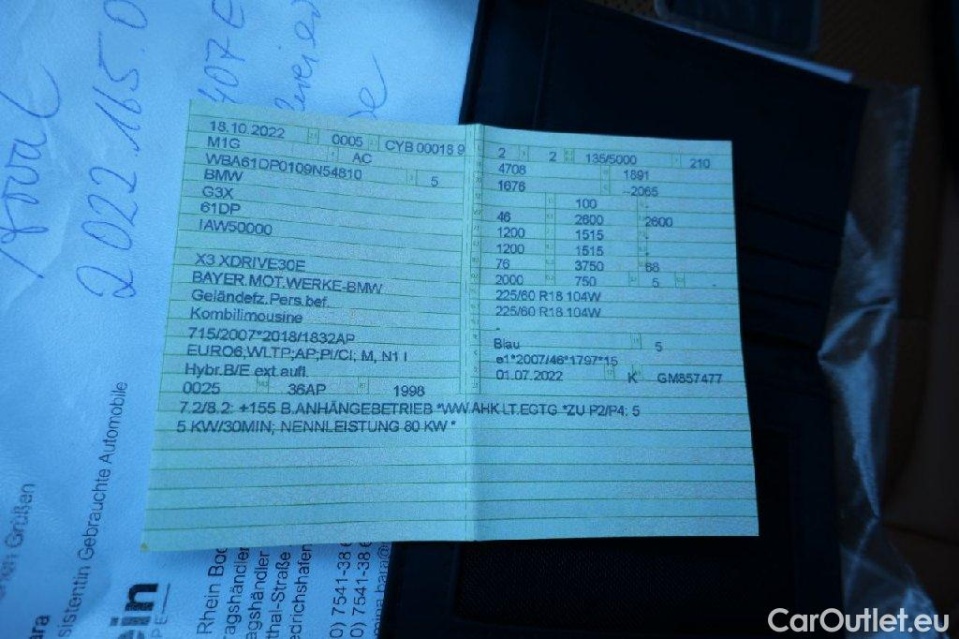 18.10.2022 0005 CYB 00018 9
M1G AC
WBA61DP0109N54810 5
BMW
G3X
61DP
IAW50000
X3 XDRIVE30E
BAYER.MOT.WERKE-BMW
Geländefz.Pers.bef.
Kombilimousine
715/2007*2018/1832AP
EURO6;WLTP;AP;PI/CI; M, N1 I
Hybr.B/E ext.aufl.
0025 36AP 1998
2 2 135/5000 210
4708 1891
1676 -2065
100 -
46 2600 2600
1200 1515 -
1200 1515 -
76 3750 68
2000 750 5 -
225/60 R18 104W
225/60 R18 104W
-
Blau 5
e1*2007/46*1797*15
01.07.2022 K GM857477
7.2/8.2: +155 B.ANHÄNGEBETRIEB *WW.AHK LT.EGTG *ZU P2/P4: 5
5 KW/30MIN; NENNLEISTUNG 80 KW *
2022.165.0
407E
Grüßen
sistentin Gebrauchte Automobile
ein
Rhein
0) 7541-38 6
0) 7541-38 6
CarOutlet.eu